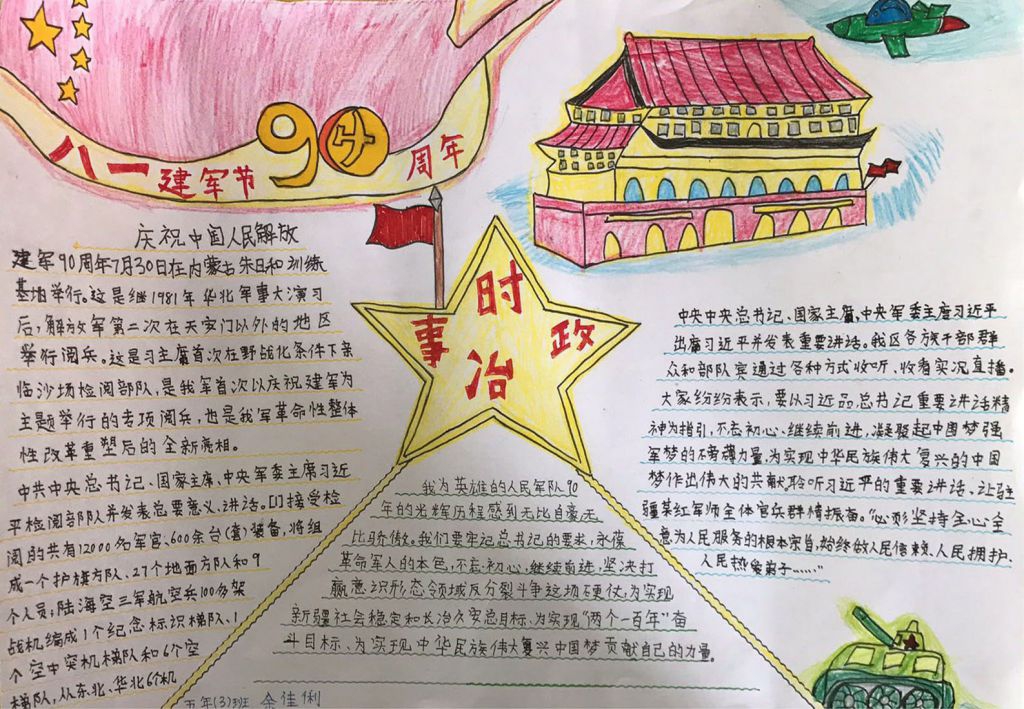 八一建军节90周年
时事政治
庆祝中国人民解放
建军90周年7月30日在内蒙古朱日和训练
基地举行。这是继1981年华北军事大演习
后,解放军第二次在天安门以外的地区
举行阅兵。这是习主席首次在野战化条件下亲
临沙场检阅部队,是我军首次以庆祝建军为
主题举行的专项阅兵,也是我军革命性整体
性改革重塑后的全新亮相。
中共中央总书记、国家主席、中央军委主席习近
平检阅部队并发表总要意义、讲话。[1]接受检
阅的共有12000名军官、600余台(套)装备,将组
成一个护旗方队、27个地面方队和9
个人员;陆海空三军航空兵100多架
战机编成1个纪念标识梯队、1
个空中突机梯队和6个空
梯队,从东北、华北6个机
我为英雄的人民军队90
年的光辉历程感到无比自豪无
比骄傲。我们要牢记总书记的要求,永葆
革命军人的本色,不忘初心,继续前进,坚决打
赢意识形态领域反分裂斗争这场不更仗,为实现
新疆社会稳定和长治久安总目标、为实现“两个一百年”奋
斗目标、为实现中华民族伟大复兴中国梦贡献自己的力量。
中央中央总书记、国家主席,中央军委主席习近平
出席习近平并发表重要讲话。我区各族干部群
众和部队宾通过各种方式收听、收看实况直播。
大家纷纷表示,要从习近品总书记重要讲话精
神为指引,不忘初心、继续前进,凝聚起中国梦强
军梦的不薄力量,为实现中华民族伟大复兴的中国
梦作出伟大的共献,聆听习近平的重要讲话、让驻
疆某红军师全体官兵群情振奋。“必须坚持全心全
意为人民服务的根本宗旨,始终做人民信赖、人民拥护、
人民热爱弟子……”
五年(3)班 余佳俐